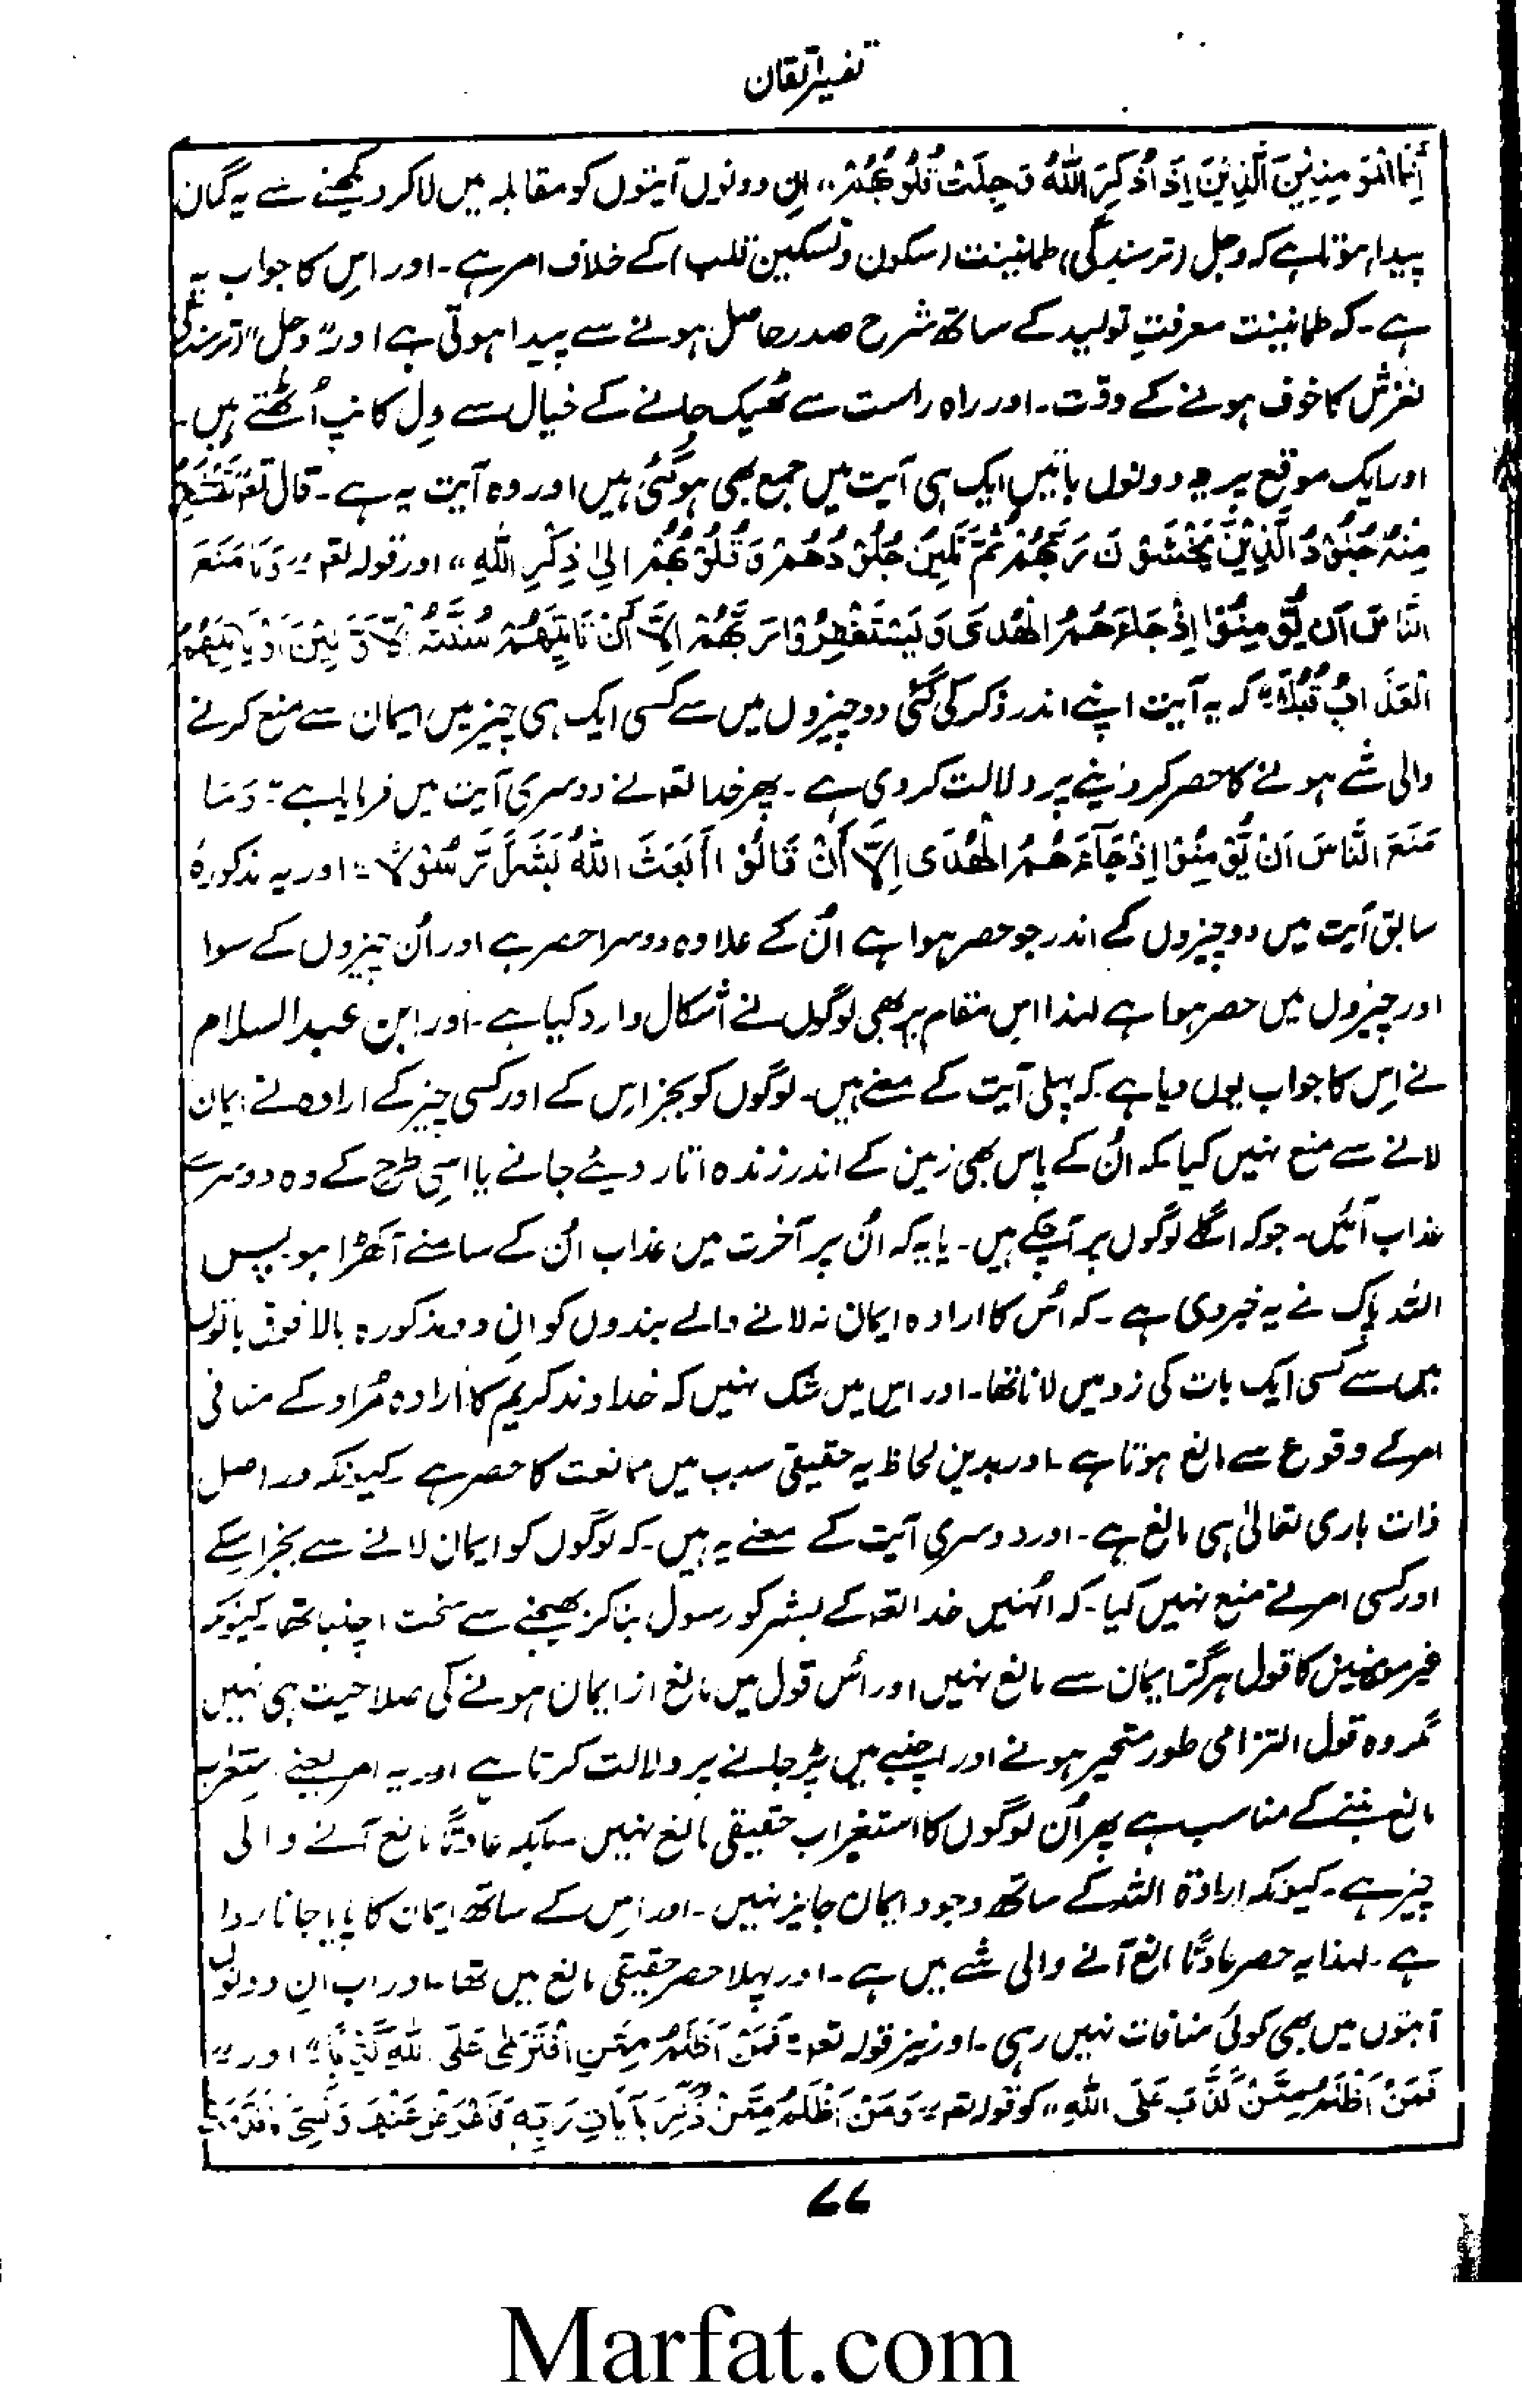 تفسیر اتقان
اِنَّمَا الْمُؤْمِنِیْنَ الَّذِیْنَ اِذَا ذُکِرَ اللّٰهُ وَجِلَتْ قُلُوْبُهُمْ" اِن دونوں آیتوں کو مقابلہ میں لاکر دیکھنے سے یہ گمان
پیدا ہوتا ہے کہ وجل (ترسندگی) طمانینت (سکون و تسکین قلب) کے خلاف امر ہے۔ اور اِس کا جواب یہ
ہے۔ کہ طمانینت معرفتِ تولید کے ساتھ شرح صدر حاصل ہونے سے پیدا ہوتی ہے اور "وجل" (ترسندگی
لغزش کا خوف ہونے کے وقت۔ اور راہ راست سے بھٹک جانے کے خیال سے دِل کانپ اُٹھتے ہیں۔
اور ایک موقع پر یہ دونوں باتیں ایک ہی آیت میں جمع بھی ہوگئی ہیں اور وہ آیت یہ ہے۔ قال تعہ "تَقْشَعِرُّ
مِنْهُ جُلُوْدُ الَّذِیْنَ یَخْشَوْنَ رَبَّهُمْ ثُمَّ تَلِیْنُ جُلُوْدُهُمْ وَ قُلُوْبُهُمْ اِلیٰ ذِکْرِ اللّٰهِ" اور قولہ تعہ "وَمَا مَنَعَ
النَّاسَ اَنْ یُّؤْمِنُوْا اِذْ جَاءَهُمُ الْهُدَی وَ یَسْتَغْفِرُوْا رَبَّهُمْ اِلَّا اَنْ تَاْتِیَهُمْ سُنَّةُ الْاَوَّلِیْنَ اَوْ یَاْتِیَهُمُ
الْعَذَابُ قُبُلًا" کہ یہ آیت اپنے اندر ذکر کی گئی دو چیزوں میں سے کسی ایک ہی چیز میں ایمان سے منع کرنے
والی شے ہونے کا حصر کردینے پر دلالت کررہی ہے۔ پھر خدا تعہ نے دوسری آیت میں فرمایا ہے "وَمَا
مَنَعَ النَّاسَ اَنْ یُّؤْمِنُوْا اِذْ جَآءَهُمُ الْهُدَی اِلَّا اَنْ قَالُوْا اَبَعَثَ اللّٰهُ بَشَرًا رَّسُوْلًا" اور یہ مذکورہٗ
سابق آیت میں دو چیزوں کے اندر جو حصر ہوا ہے اُن کے علاوہ دوسرا حصر ہے اور اُن چیزوں کے سوا
اور چیزوں میں حصر ہوا ہے لہذا اس مقام پر بھی لوگوں نے اشکال وارد کیا ہے۔ اور ابن عبدالسلام
نے اِس کا جواب یوں دیا ہے کہ پہلی آیت کے معنے ہیں۔ لوگوں کو بجز اِس کے اور کسی چیز کے ارادہ نے ایمان
لانے سے منع نہیں کیا کہ اُن کے پاس بھی زمین کے اندر زندہ اتار دیئے جانے یا اسی طرح کے وہ دوسرے
عذاب آئیں۔ جو کہ اگلے لوگوں پر آچکے ہیں۔ یا یہ کہ اُن پر آخرت میں عذاب اُن کے سامنے آکھڑا ہو پس
اللہ پاک نے یہ خبر دی ہے۔ کہ اُس کا ارادہ ایمان نہ لانے والے بندوں کو اِن دو مذکورہ بالا فوق باتوں
میں سے کسی ایک بات کی زد میں لانا تھا۔ اور اس میں شک نہیں کہ خداوند کریم کا ارادہ مُراد کے منافی
امر کے وقوع سے مانع ہوتا ہے۔ اور بدین لحاظ یہ حقیقی سبب میں ممانعت کا حصر ہے۔ کیونکہ دراصل
ذات باری تعالیٰ ہی مانع ہے۔ اور دوسری آیت کے معنے یہ ہیں۔ کہ لوگوں کو ایمان لانے سے بجز اسکے
اور کسی امر نے منع نہیں کیا۔ کہ اُنہیں خدا تعہ کے بشر کو رسول بناکر بھیجنے سے سخت اچنبا تھا۔ کیونکہ
غیر مومنین کا قول ہرگز ایمان سے مانع نہیں اور اُس قول میں مانع از ایمان ہونے کی صلاحیت ہی نہیں
مگر وہ قول التزامی طور متحیر ہونے اور اچنبے میں پڑ جانے پر دلالت کرتا ہے اور یہ امر یعنے استغراب
مانع بننے کے مناسب ہے پھر اُن لوگوں کا استغراب حقیقی مانع نہیں۔ بلکہ عادتًا مانع آنے والی
چیز ہے۔ کیونکہ ارادة اللہ کے ساتھ وجود ایمان جایز نہیں۔ اور اس کے ساتھ ایمان کا پایا جانا روا
ہے۔ لہذا یہ حصر عادتًا مانع آنے والی شے میں ہے۔ اور پہلا حصر حقیقی مانع میں تھا۔ اور اب اِن دونوں
آیتوں میں بھی کوئی منافات نہیں رہی۔ اور نیز قولہ تعہ "فَمَنْ اَظْلَمُ مِمَّنِ افْتَرَیٰ عَلَی اللّٰهِ کَذِبًا" اور "
فَمَنْ اَظْلَمُ مِمَّنْ کَذَبَ عَلَی اللّٰهِ" کو قولہ تعہ "وَمَنْ اَظْلَمُ مِمَّنْ ذُکِّرَ بِآیَاتِ رَبِّهٖ فَاَعْرَضَ عَنْهَا وَ نَسِیَ مَا قَدَّمَتْ
۷۷
Marfat.com